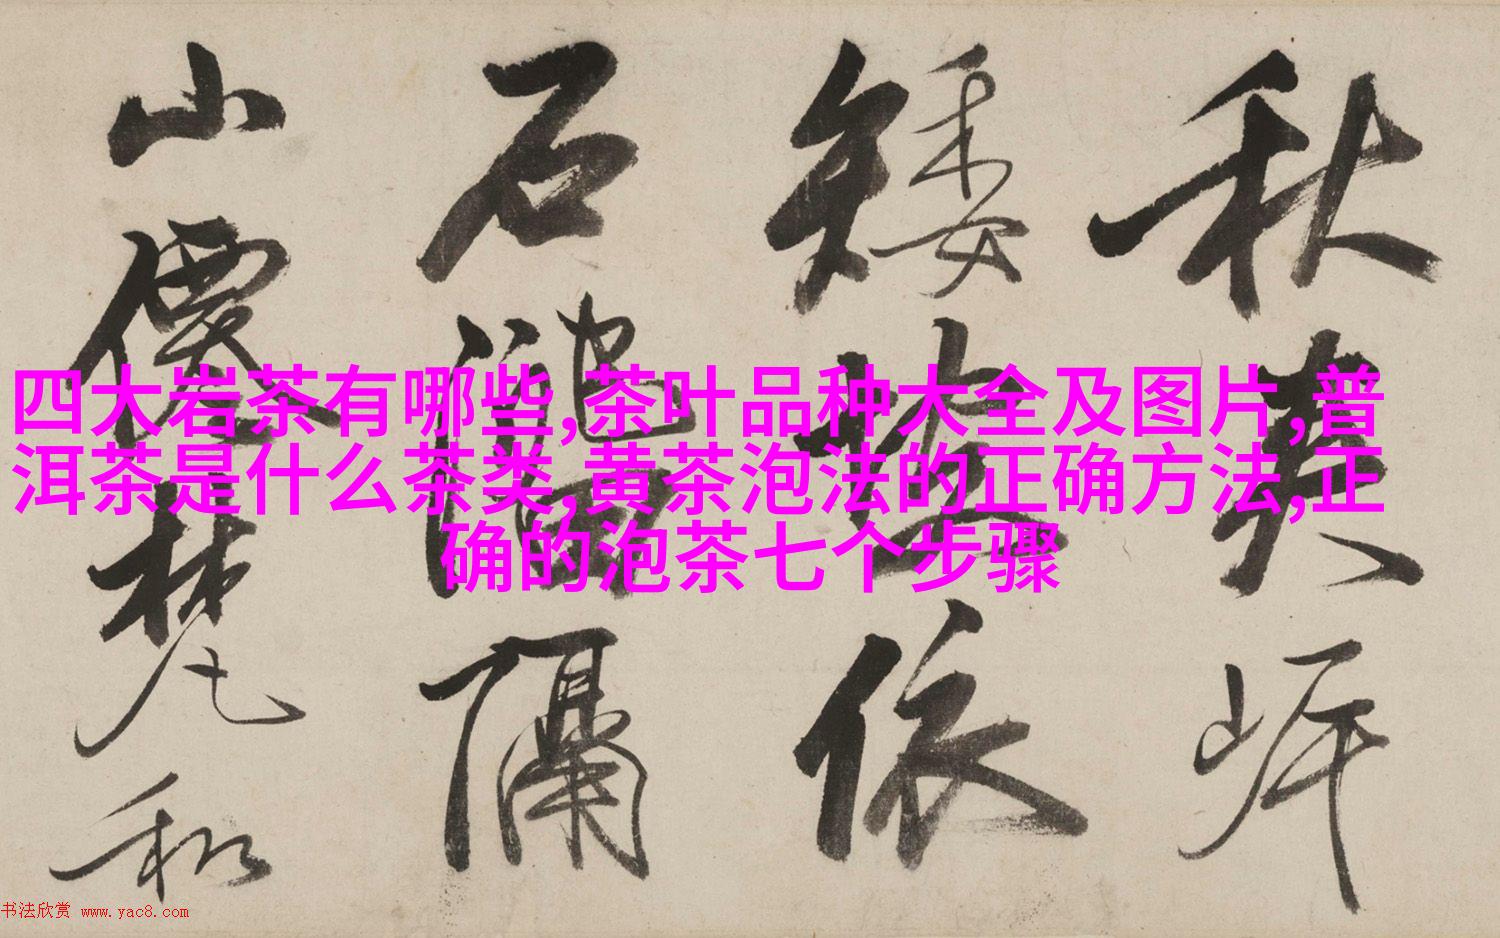 四大岩茶有哪些,茶叶品种大全及图片,普
洱茶是什么茶类,黄茶泡法的正确方法,正
确的泡茶七个步骤
秋爽
矮依
石隔
山僊梵和
书法欣赏 www.yac8.com